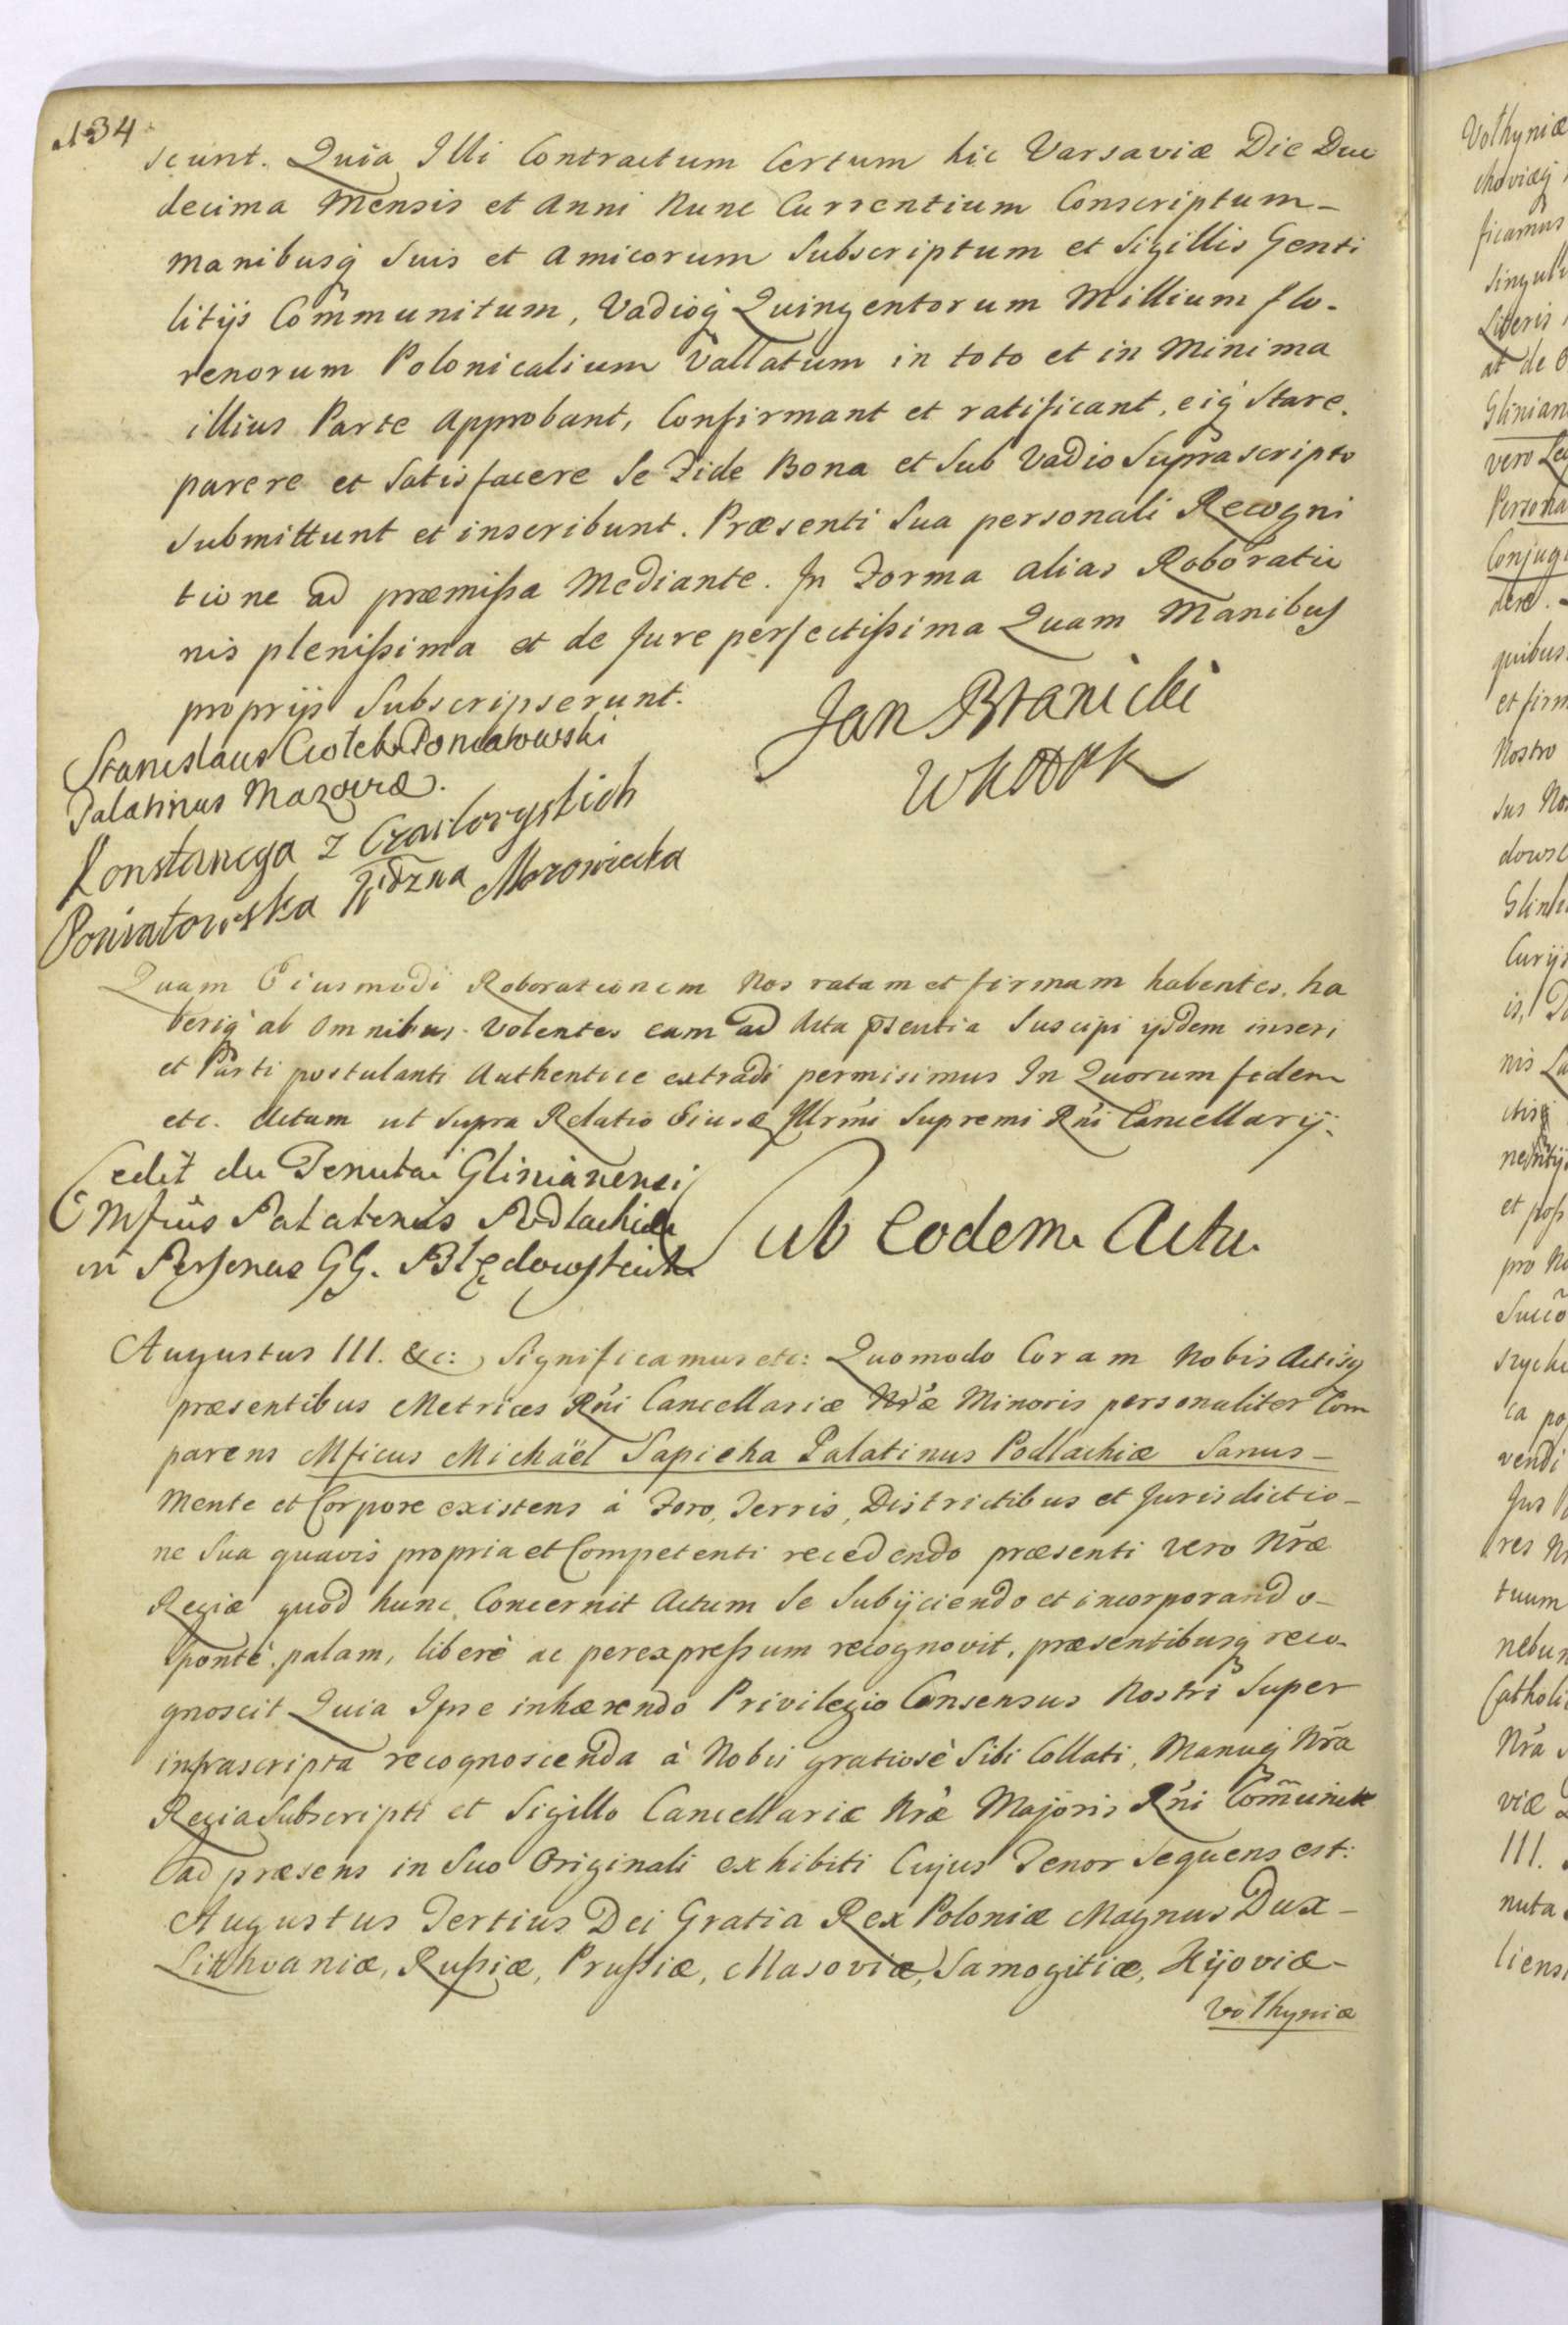 134
scunt. Quia Illi Contractum Certum hic Varsaviæ Die Duo
decima Mensis et Anni Nunc Currentium Conscriptum-
manibusq́ Suis et Amicorum Subscriptum et Sigillis Genti
litijs Com̃munitum, Vadioq́ Quingentorum Millium flo-
renorum Polonicalium Vallatum in toto et in Minima
illius Parte Approbant, Confirmant et ratificant, eiq́ Stare,
parere et Satisfacere Se Fide Bona et Sub Vadio Suprascripto
Submittunt et inscribunt. Præsenti Sua personali Recogni
tione ad præmißa Mediante. In Forma alias Roboratio
nis plenißima et de Jure perfectißima Quam Manibus
proprijs Subscripserunt.
Jan Branicki
Stanislaus Ciołek Poniatowski
Palatinus Mazoviæ.
Konstancya z Czartoryskich
Poniatowska Mazowiecka
Quam Eiusmodi Roborationem Nos ratam et firmam habentes, ha
beriq́ ab Omnibus Volentes eam ad Acta p̃sentia Suscipi ijsdem inseri
et Parti postulanti Authentice extradi permisimus In Quorum fidem
etc. Actum ut Supra Relatio Supremi Rńi Cancellarij.
Cedit de Tenuta Glinianensi
Mficus Palatinus Podlachiæ
in Personas GG. Błędowskich
Sub Eodem Actu
Augustus III. &c: Significamus etc: Quomodo Coram Nobis Actisq́
præsentibus Metrices Rńi Cancellariæ Nrǽ Minoris personaliter Com
parens Mficus Michaël Sapieha Palatinus Podlachiæ Sanus-
Mente et Corpore existens à Foro, Terris, Districtibus et Jurisdictio-
ne Sua quavis propria et Competenti recedendo præsenti vero Nrǽ
Regiæ quod hunc Concernit Actum Se Subijciendo et incorporando-
Sponté, palam, liberè ac perexpreßum recognovit, præsentibusq́ reco-
gnoscit Quia Ipse inhærendo Privilegio Consensus Nostri Super
infrascripta recognoscenda à Nobis gratiosè Sibi Collati, Manuq́ Nrã
Regia Subscripti et Sigillo Cancellariæ Nrǽ Majoris Rńi Com̃uniti
ad præsens in Suo Originali exhibiti Cujus Tenor Sequens est:
Augustus Tertius Dei Gratia Rex Poloniæ Magnus Dux-
Lithvaniæ, Rußiæ, Prußiæ, Masoviæ, Samogitiæ, Kijoviæ-
Volhyniæ